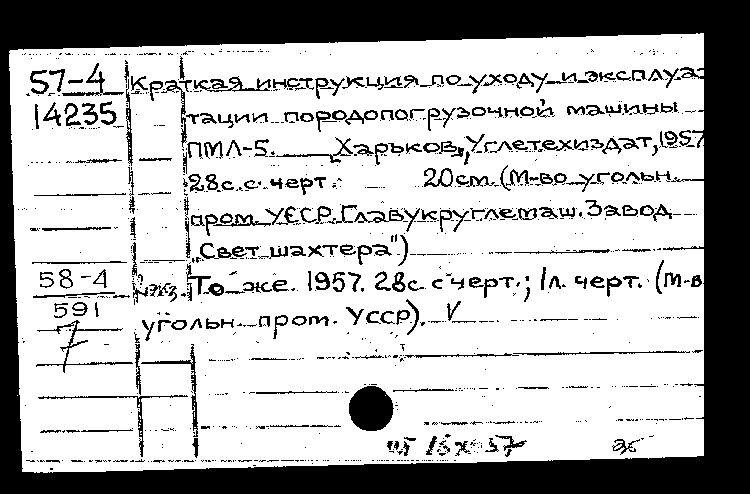 57-4 Краткая инструкция по уходу и эксплуа-
14235 тации породопогрузочной машины
ПМЛ-5. Харьков, Углетехиздат, 1957
28с. с черт. 20см. (М-во угольн.
пром. УССР. Главукруглемаш. Завод
"Свет шахтера")
58-4 То же. 1957. 28с. с черт.; 1л. черт. (М-в
591 угольн. пром. УССР). V
7